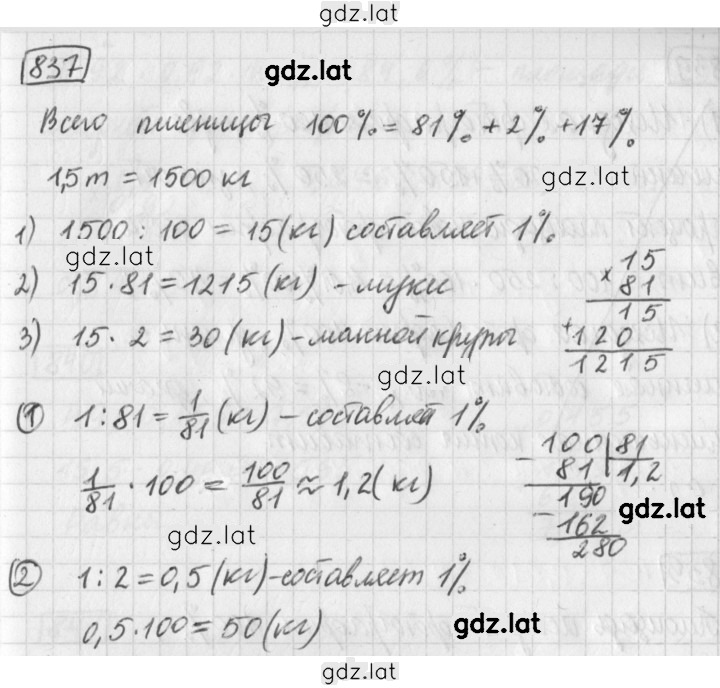 gdz.lat
837
gdz.lat
Всего пшеницы 100% = 81% + 2% + 17%
1,5 т = 1500 кг
gdz.lat
1) 1500 : 100 = 15 (кг) составляет 1%
gdz.lat
2) 15 · 81 = 1215 (кг) - муки
3) 15 · 2 = 30 (кг) - манной крупы
15
× 81
15
+ 120
1215
gdz.lat
① 1 : 81 = 1/81 (кг) - составляет 1%
1/81 · 100 = 100/81 ≈ 1,2 (кг)
- 100 | 81
81 | 1,2
190
- 162
280
gdz.lat
gdz.lat
② 1 : 2 = 0,5 (кг) - составляет 1%
0,5 · 100 = 50 (кг)
gdz.lat
gdz.lat